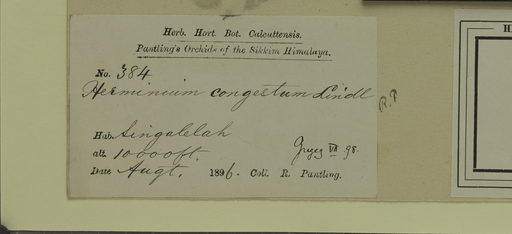 Herb. Hort. Bot. Calcuttensis.
Pantling's Orchids of the Sikkim Himalaya.
No. 384
Herminium congestum Lindl
R.P
Hab. Singalelah
alt. 10000ft. VII 98.
Date Augt. 1896. Coll. R. Pantling.
H